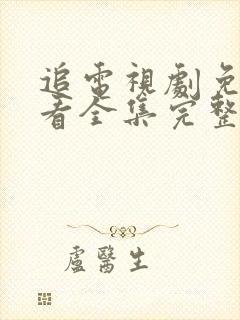 追電視劇免
看全集完整
盧醫生